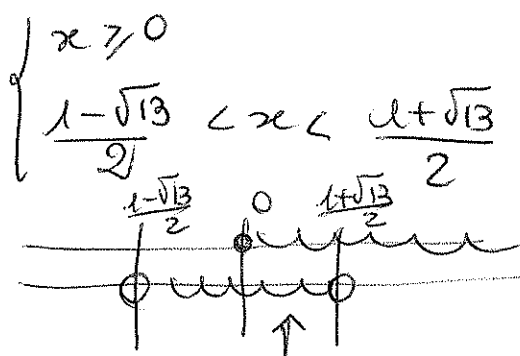 x ≥ 0
(1-√13)/2 < x < (1+√13)/2
(1-√13)/2 0 (1+√13)/2